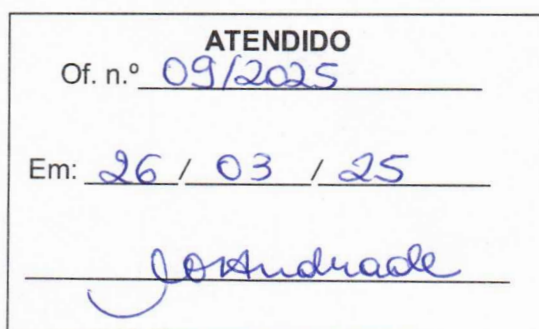 ATENDIDO
Of. n.º 09/2025
Em: 26 / 03 / 25
Andrade